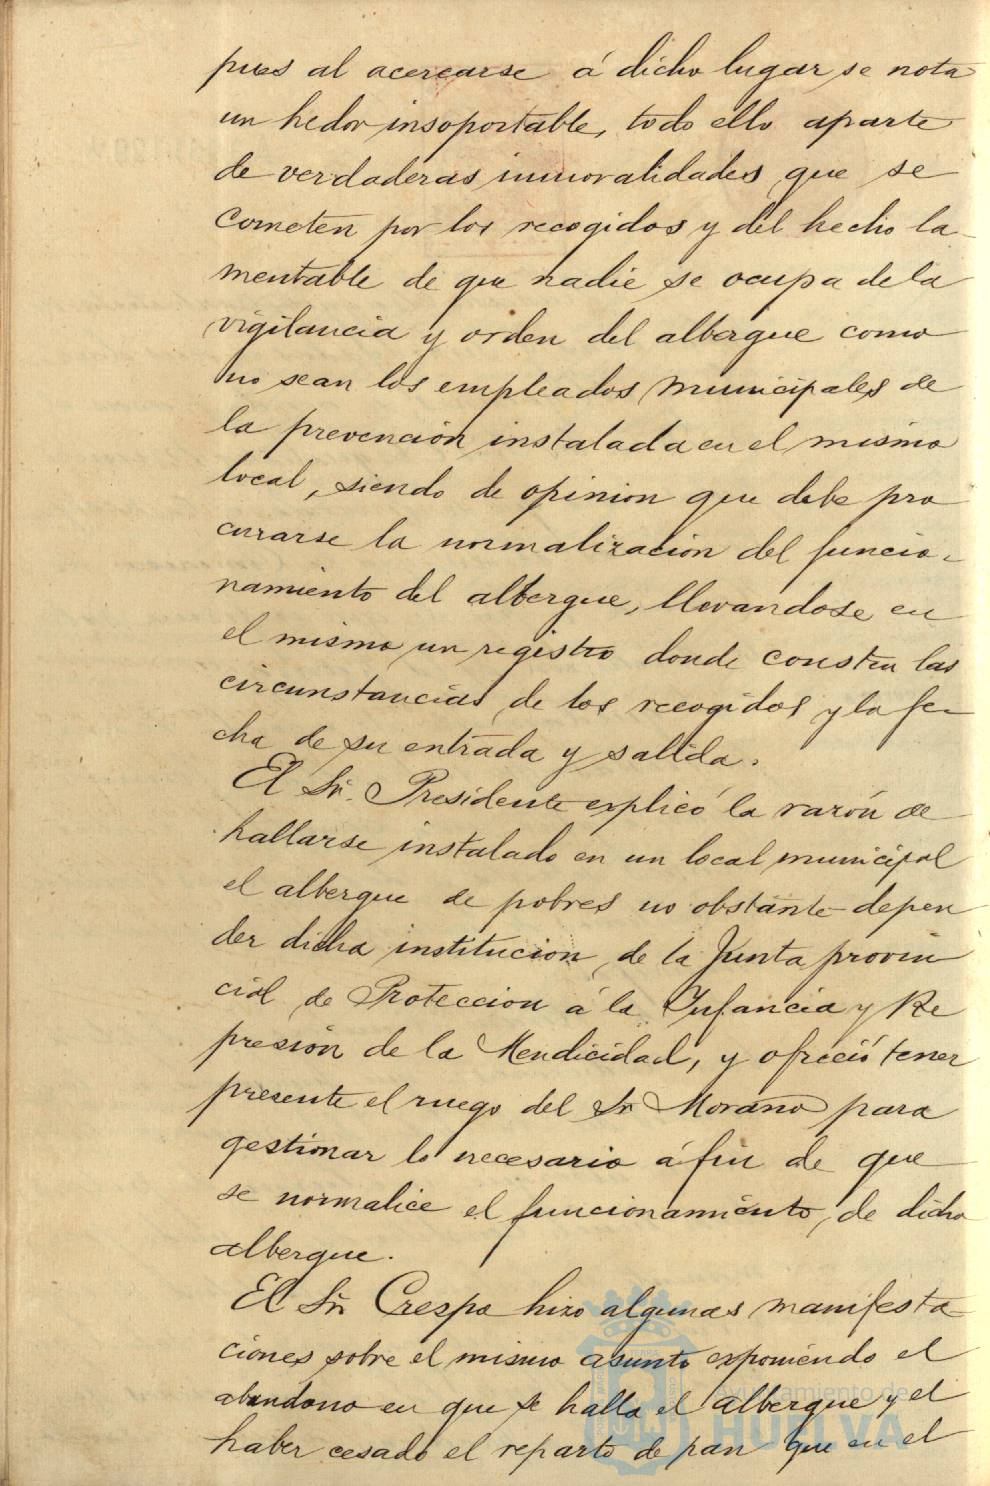 pues al acercarse á dicho lugar se nota
un hedor insoportable, todo ello aparte
de verdaderas inmoralidades que se
cometen por los recogidos y del hecho la-
mentable de que nadie se ocupa de la
vigilancia y orden del albergue como
no sean los empleados municipales de
la prevención instalada en el mismo
local, siendo de opinion que debe pro
curarse la normalización del funcio-
namiento del albergue, llevandose en
el mismo un registro donde consten las
circunstancias de los recogidos y la fe-
cha de su entrada y salida.
El Sr. Presidente explicó la razón de
hallarse instalado en un local municipal
el albergue de pobres no obstante depen
der dicha institucion de la Junta provin
cial de Proteccion á la Infancia y Re
presión de la Mendicidad, y ofreció tener
presente el ruego del Sr Morano para
gestionar lo necesario á fin de que
se normalice el funcionamiento de dicho
albergue.
El Sr. Crespo hizo algunas manifesta
ciones sobre el mismo asunto exponiendo el
abandono en que se halla el albergue y el
haber cesado el reparto de pan que en el
Ayuntamiento de
HUELVA